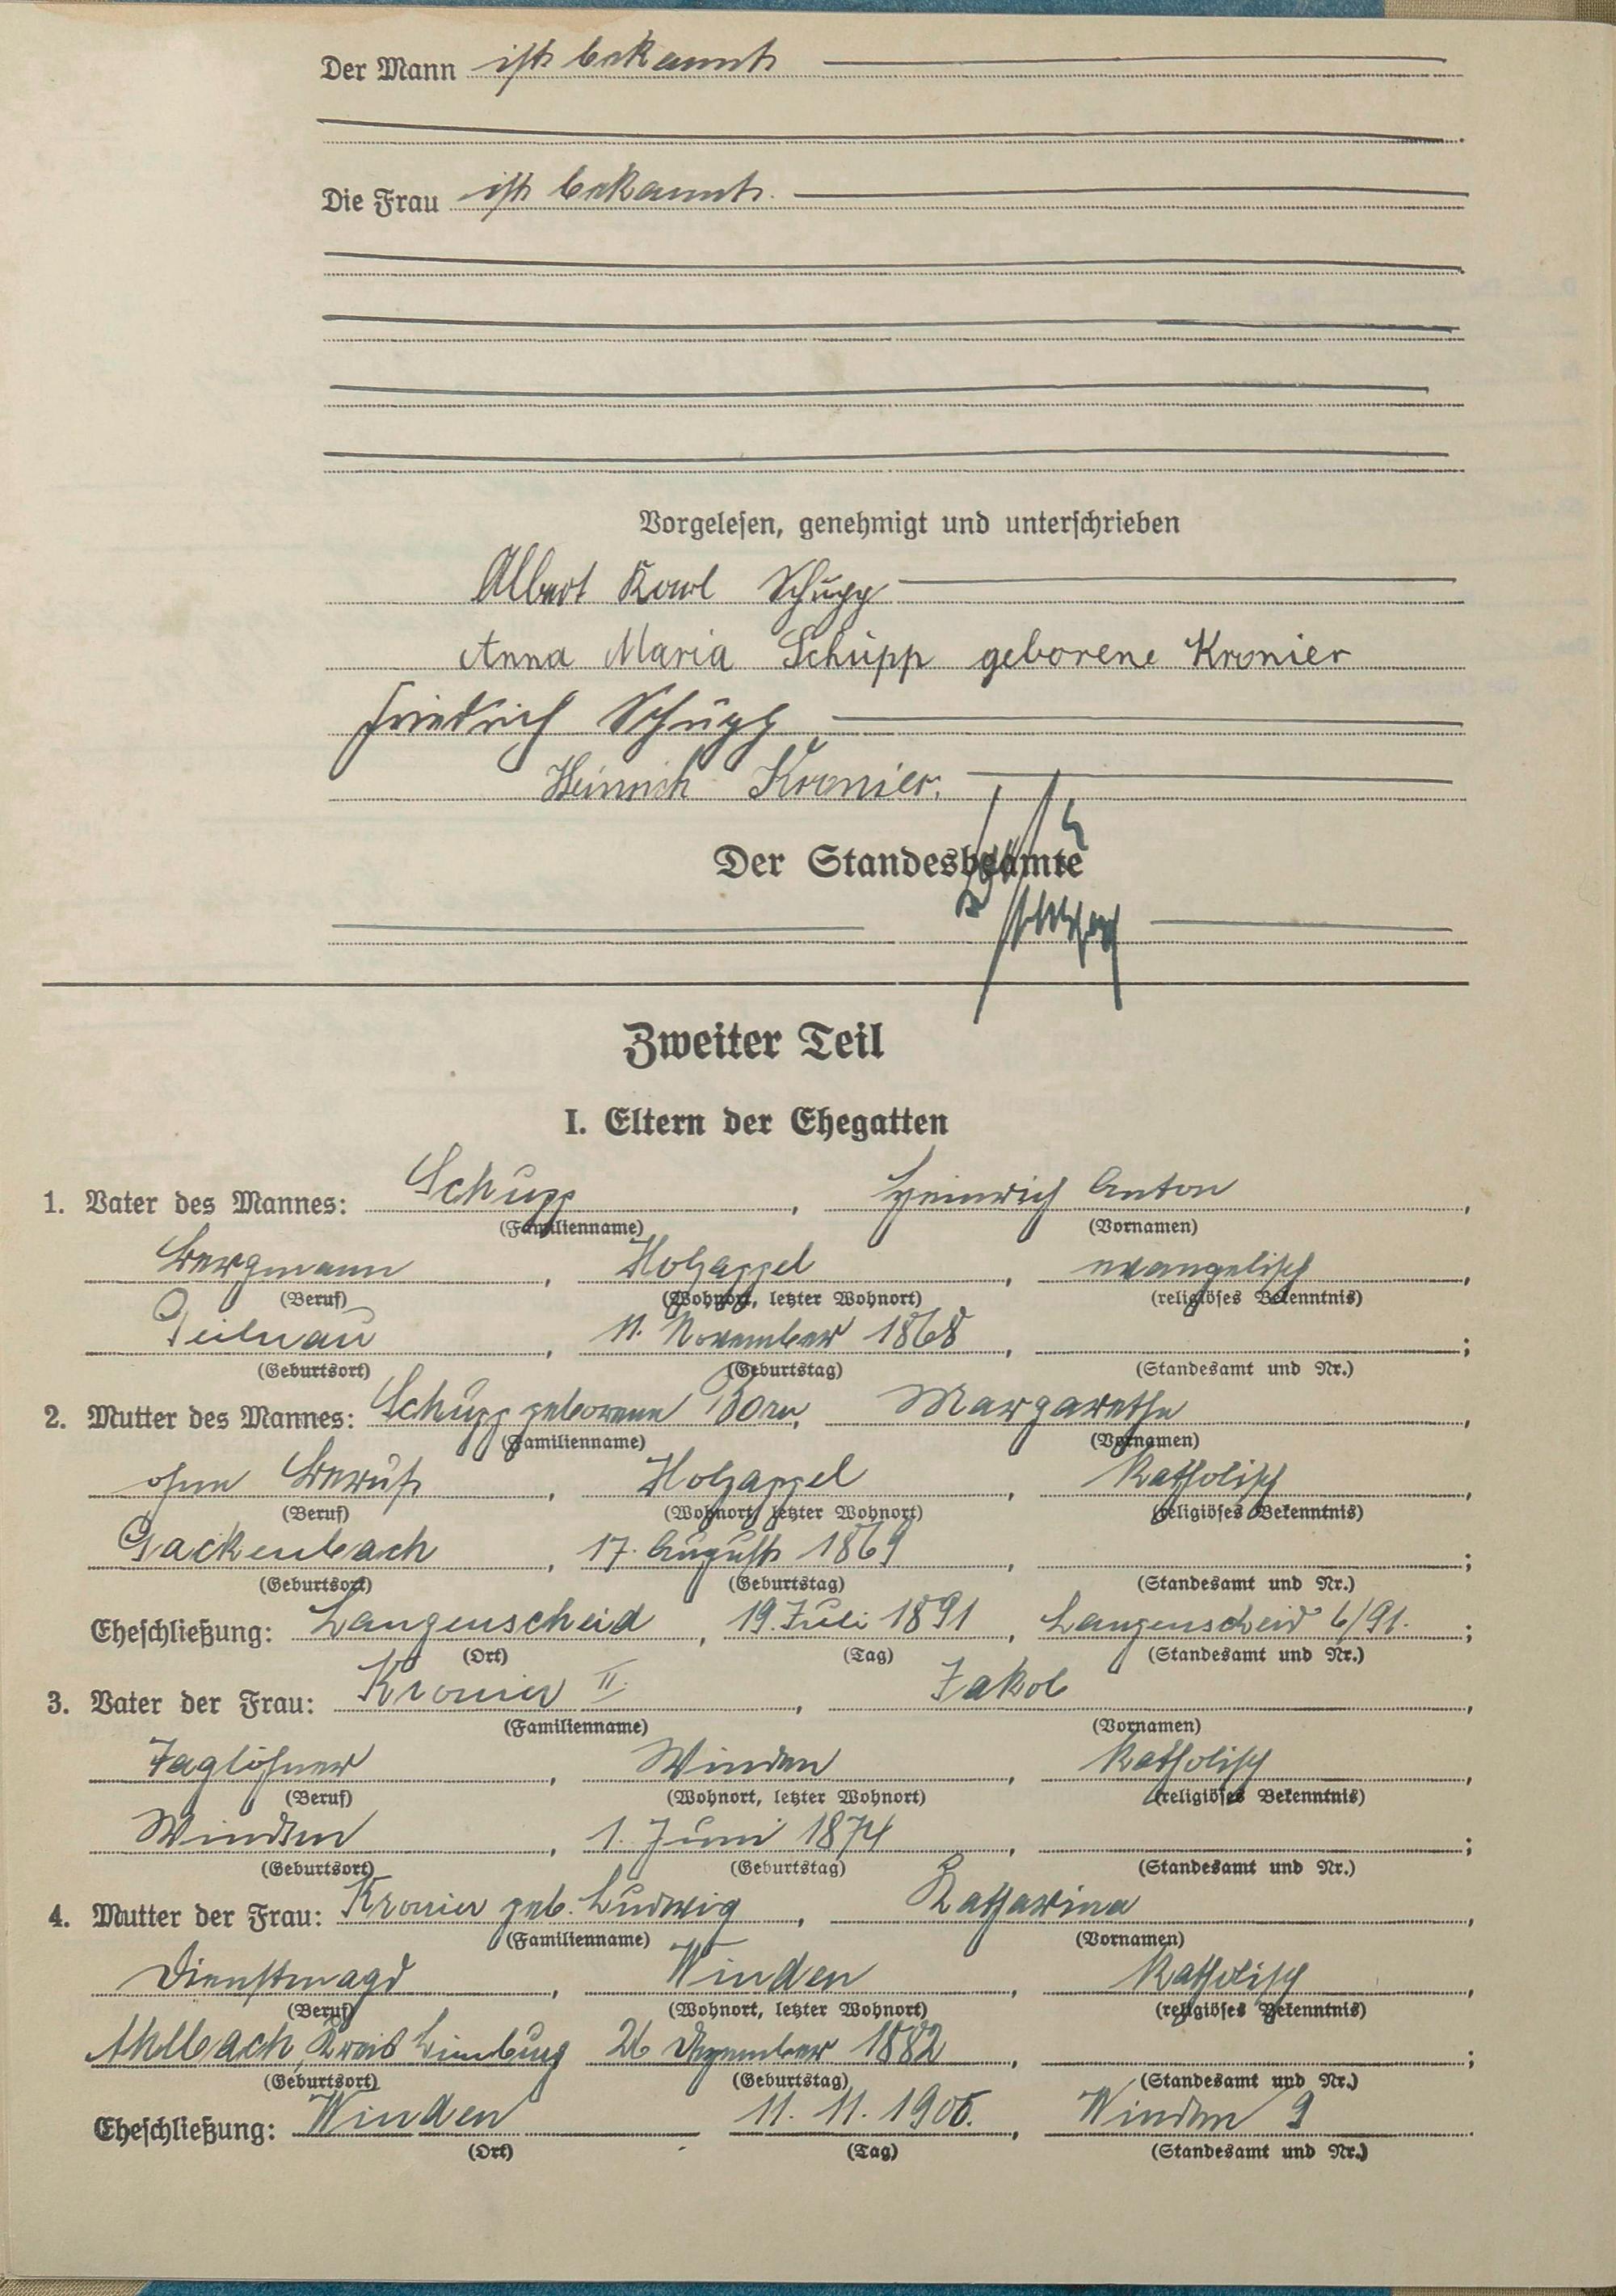 Der Mann ist bekannt
Die Frau ist bekannt.
Vorgelesen, genehmigt und unterschrieben
Albert Karl Schupp
Anna Maria Schupp geborene Kronier
Friedrich Schupp
Heinrich Kronier.
Der Standesbeamte
Zweiter Teil
I. Eltern der Ehegatten
1. Vater des Mannes: Schupp, Heinrich Anton,
(Familienname) (Vornamen)
Bergmann, Holzappel, evangelisch,
(Beruf) (Wohnort, letzter Wohnort) (religiöses Bekenntnis)
11. November 1868, ;
(Geburtsort) (Geburtstag) (Standesamt und Nr.)
2. Mutter des Mannes: Schupp geborene Born, Margarethe,
(Familienname) (Vornamen)
ohne Beruf, Holzappel, katholisch,
(Beruf) (Wohnort, letzter Wohnort) (religiöses Bekenntnis)
Gackenbach, 17. August 1869, ;
(Geburtsort) (Geburtstag) (Standesamt und Nr.)
Eheschließung: Langenscheid, 19. Juli 1891, Langenscheid 6/91. ;
(Ort) (Tag) (Standesamt und Nr.)
3. Vater der Frau: Kronier II., Jakob,
(Familienname) (Vornamen)
Taglöhner, Winden, katholisch,
(Beruf) (Wohnort, letzter Wohnort) (religiöses Bekenntnis)
Winden, 1. Juni 1874, ;
(Geburtsort) (Geburtstag) (Standesamt und Nr.)
4. Mutter der Frau: Kronier geb. Ludwig, Katharina,
(Familienname) (Vornamen)
Dienstmagd, Winden, katholisch,
(Beruf) (Wohnort, letzter Wohnort) (religiöses Bekenntnis)
Ahlbach, Kreis Limburg 26 Dezember 1882, ;
(Geburtsort) (Geburtstag) (Standesamt und Nr.)
Eheschließung: Winden 11. 11. 1906., Winden 9.
(Ort) (Tag) (Standesamt und Nr.)